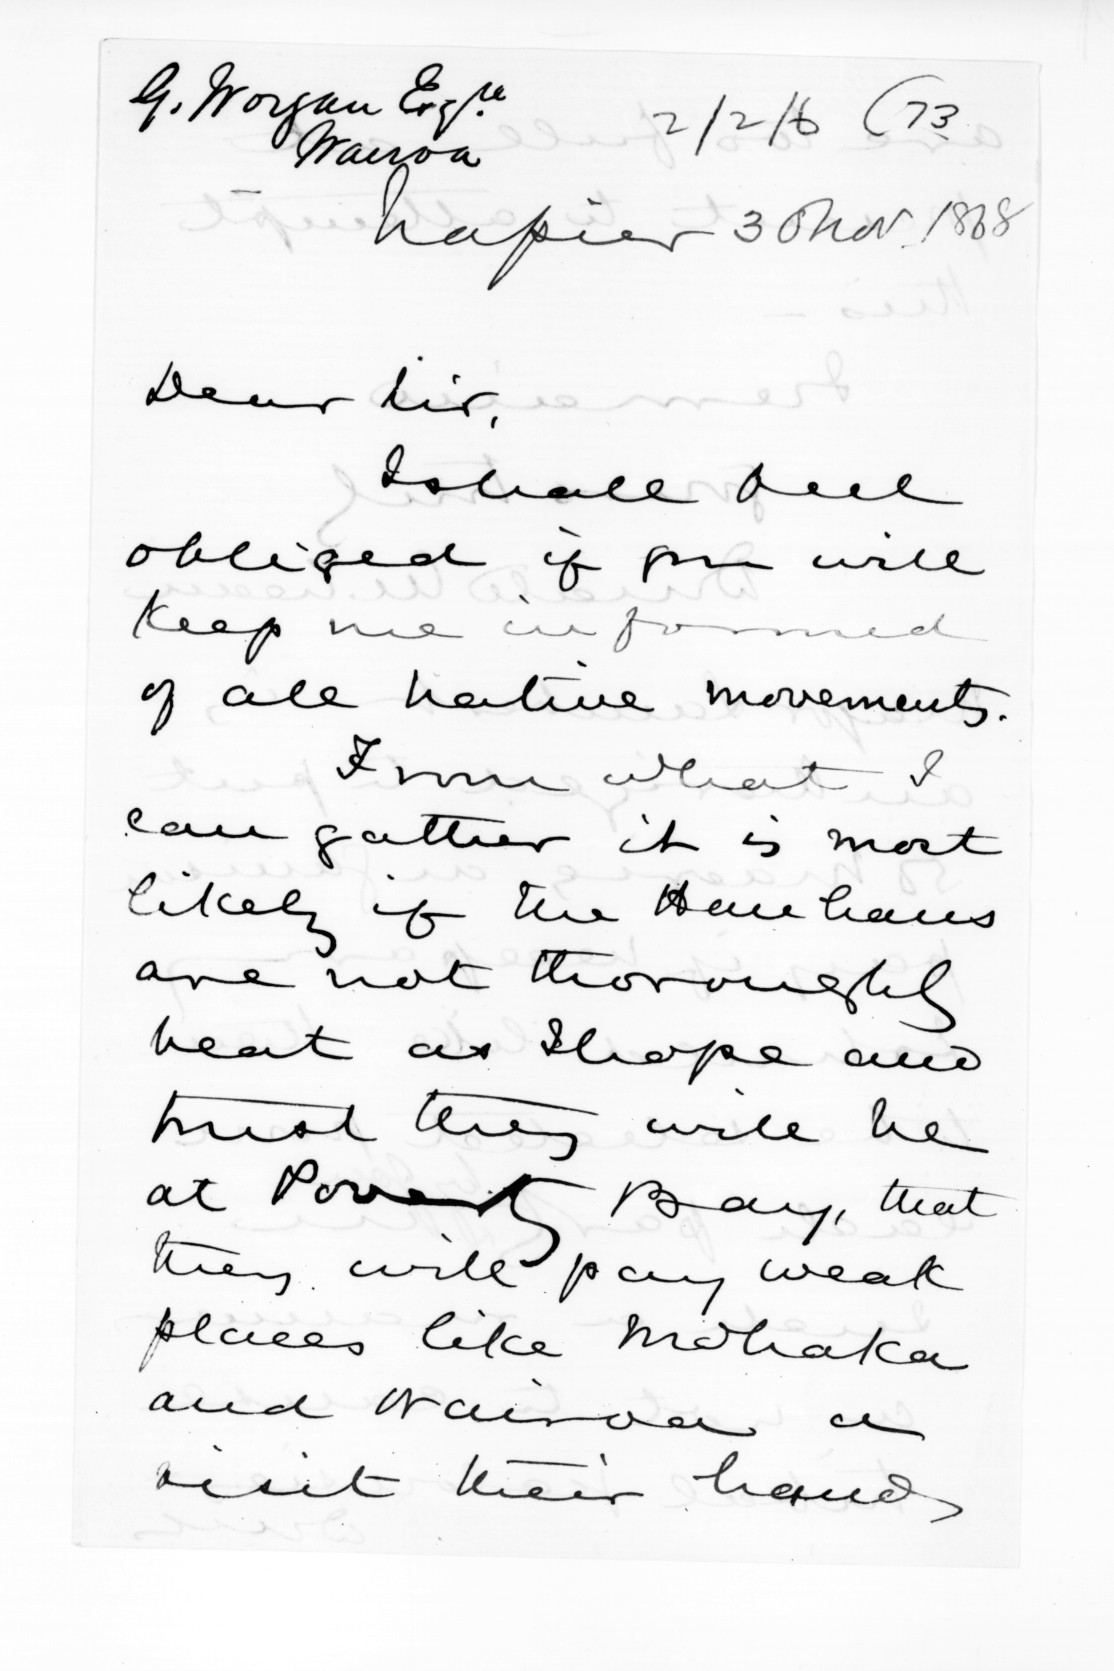 G. Worgan Esqre
Wairoa
2/2/6 (73
Napier 30 Nov. 1868
Dear Sir,
I shall feel
obliged if you will
keep me informed
of all native movements.
From what I
can gather it is most
likely if the Hau haus
are not thoroughly
beat as I hope and
trust they will be
at Poverty Bay, that
they will pay weak
places like Mohaka
and Wairoa a
visit their hands